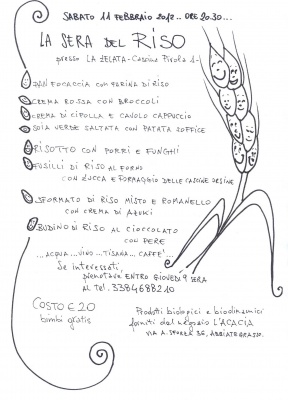 SABATO 11 FEBBRAIO 2012.. ORE 20.30...
LA SERA DEL RISO
presso LA ZELATA - Cascina Pirola 1-
PAN FOCACCIA CON FARINA DI RISO
CREMA ROSSA CON BROCCOLI
CREMA DI CIPOLLA E CAVOLO CAPPUCCIO
SOIA VERDE SALTATA CON PATATA SOFFICE
RISOTTO CON PORRI E FUNGHI
FUSILLI DI RISO AL FORNO
CON ZUCCA E FORMAGGIO DELLE CASCINE ORSINE
SFORMATO DI RISO MISTO E ROMANELLO
CON CREMA DI AZUKI
BUDINO DI RISO AL CIOCCOLATO
CON PERE
...ACQUA...VINO...TISANA...CAFFE'...
Se interessati,
prenotare ENTRO GIOVEDÌ 9 SERA
AL Tel. 3384688210
COSTO € 20
bimbi gratis
Prodotti biologici e biodinamici
forniti dal negozio L'ACACIA
VIA A. SFORZA 36, ABBIATEGRASSO.